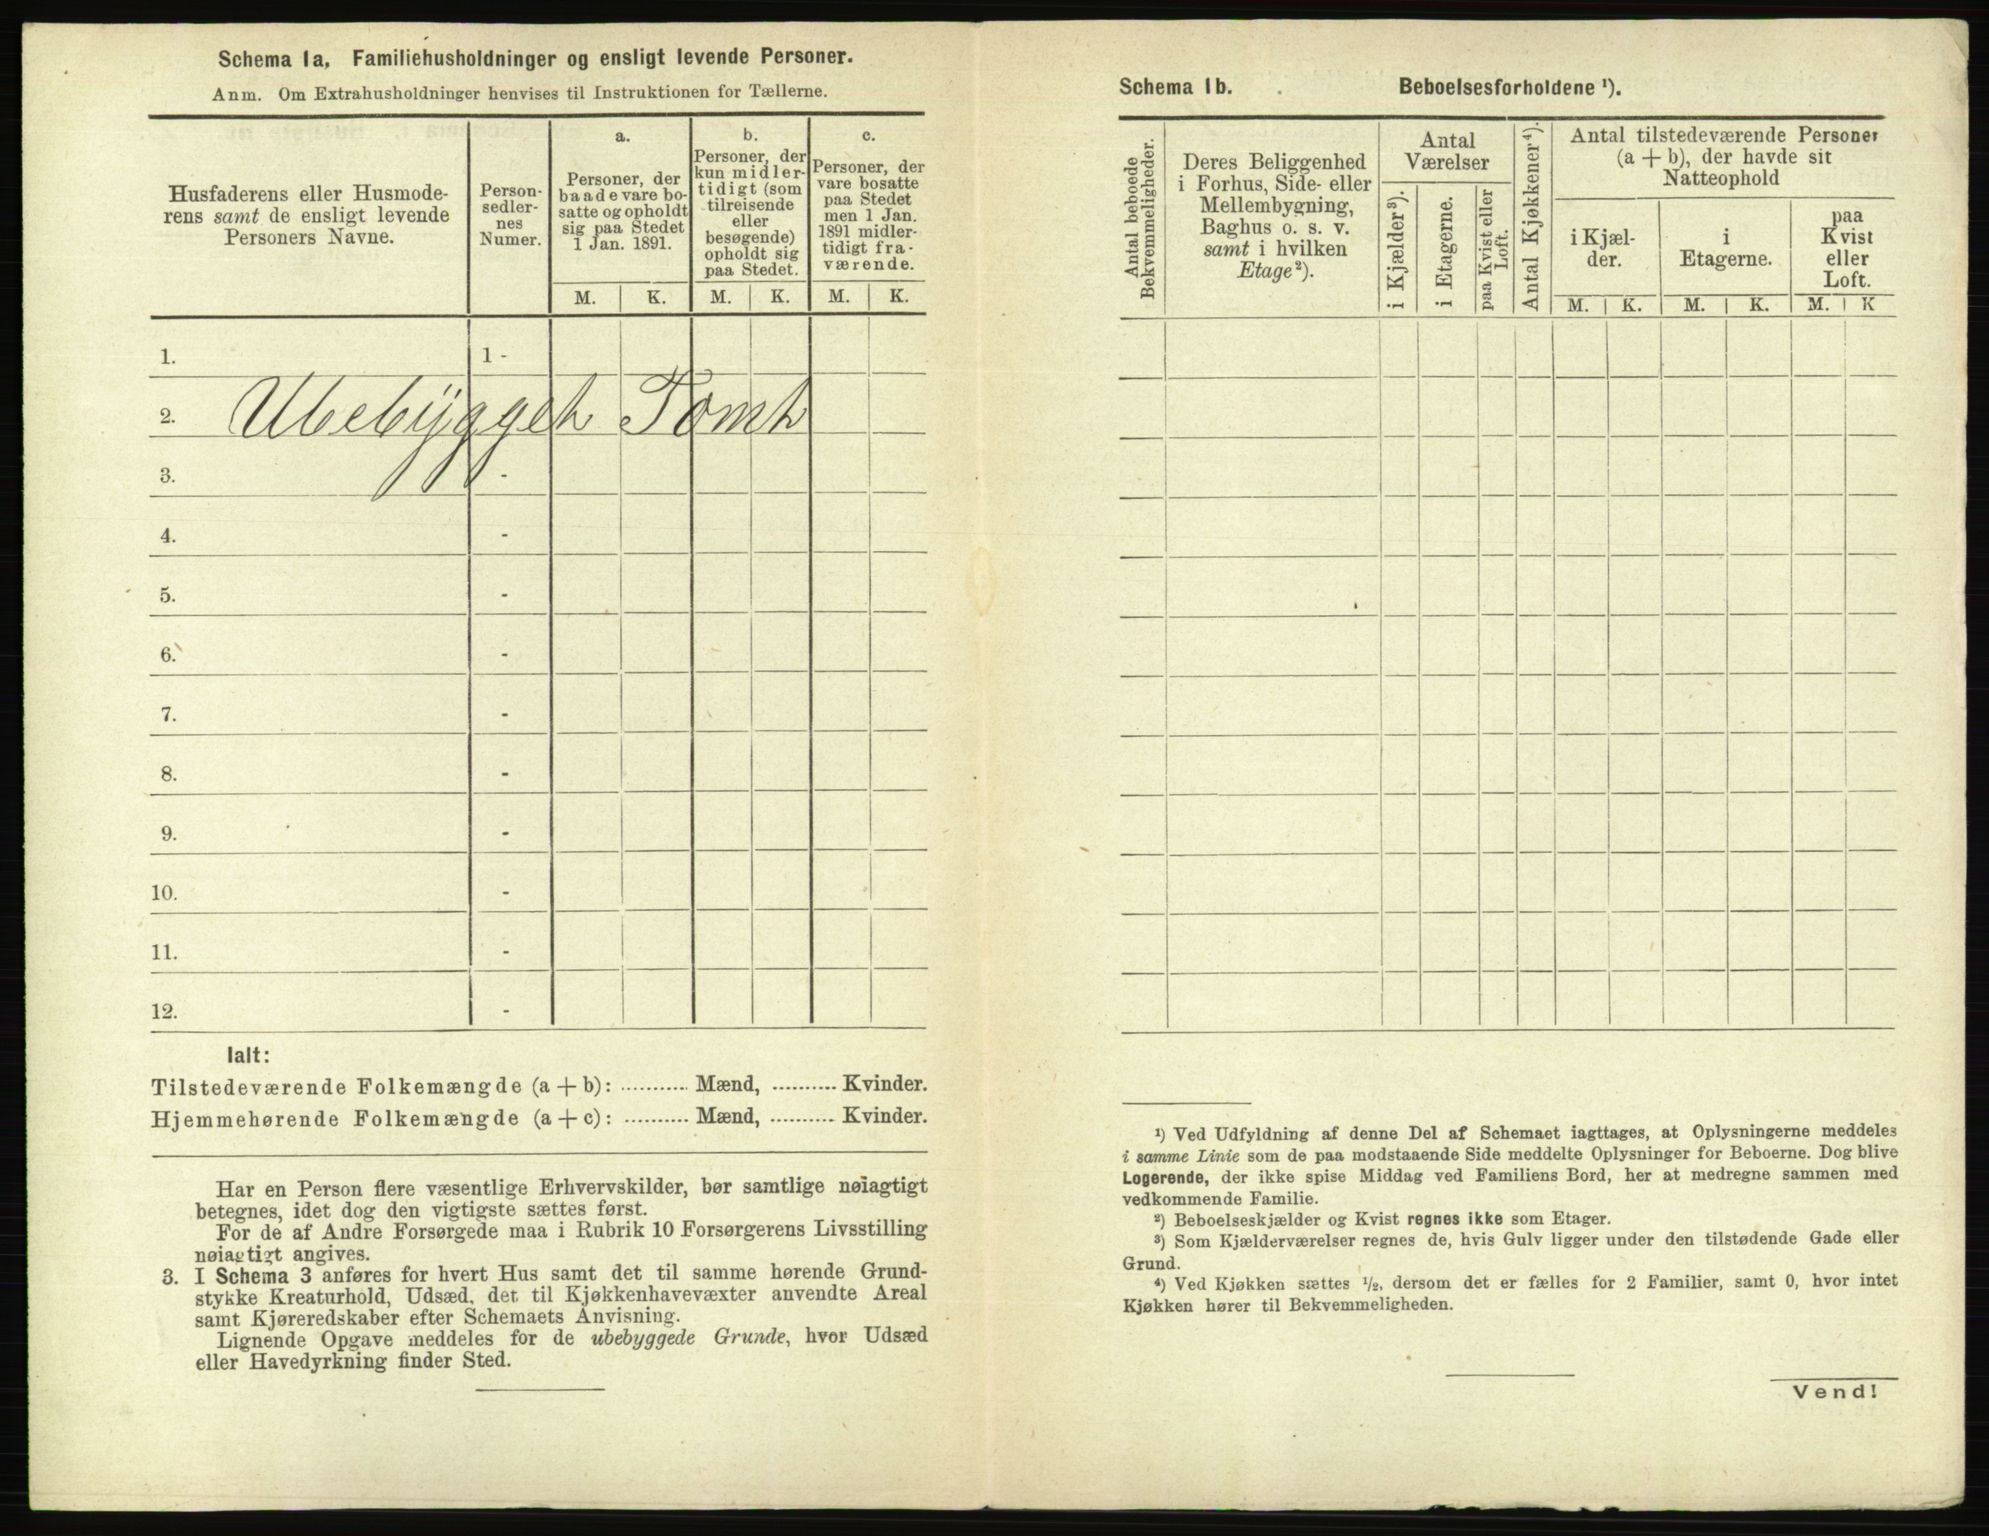 Schema 1a, Familiehusholdninger og ensligt levende Personer.
Anm. Om Extrahusholdninger henvises til Instruktionen for Tællerne.
Husfaderens eller Husmode-
rens samt de ensligt levende
Personers Navne.
Person-
sedler-
nes
Numer.
a.
Personer, der
baade vare bo-
satte og opholdt
sig paa Stedet
1 Jan. 1891.
M. K.
b.
Personer, der
kun midler-
tidigt (som
tilreisende
eller
besøgende)
opholdt sig
paa Stedet.
M. K.
c.
Personer, der
vare bosatte
paa Stedet
men 1 Jan.
1891 midler-
tidigt fra-
værende.
M. K.
1. 1 -
2. Ubebygget Tomt
3. -
4. -
5. -
6. -
7. -
8. -
9. -
10. -
11. -
12. -
Ialt:
Tilstedeværende Folkemængde (a + b): ........... Mænd, ........... Kvinder.
Hjemmehørende Folkemængde (a + c): ........... Mænd, ........... Kvinder.
Har en Person flere væsentlige Erhvervskilder, bør samtlige nøiagtigt
betegnes, idet dog den vigtigste sættes først.
For de af Andre Forsørgede maa i Rubrik 10 Forsørgerens Livsstilling
nøiagtigt angives.
3. I Schema 3 anføres for hvert Hus samt det til samme hørende Grund-
stykke Kreaturhold, Udsæd, det til Kjøkkenhavevæxter anvendte Areal
samt Kjøreredskaber efter Schemaets Anvisning.
Lignende Opgave meddeles for de ubebyggede Grunde, hvor Udsæd
eller Havedyrkning finder Sted.
Schema 1b. Beboelsesforholdene ¹).
Antal beboede
Bekvemmeligheder.
Deres Beliggenhed
i Forhus, Side- eller
Mellembygning,
Baghus o. s. v.
samt i hvilken
Etage ²).
Antal
Værelser
i Kjælder ³).
i Etagerne.
paa Kvist eller
Loft.
Antal Kjøkkener ⁴).
Antal tilstedeværende Personer
(a + b), der havde sit
Natteophold
i Kjæl-
der.
i
Etagerne.
paa
Kvist
eller
Loft.
M. K. M. K. M. K
¹) Ved Udfyldning af denne Del af Schemaet iagttages, at Oplysningerne meddeles
i samme Linie som de paa modstaaende Side meddelte Oplysninger for Beboerne. Dog blive
Logerende, der ikke spise Middag ved Familiens Bord, her at medregne sammen med
vedkommende Familie.
²) Beboelseskjælder og Kvist regnes ikke som Etager.
³) Som Kjælderværelser regnes de, hvis Gulv ligger under den tilstødende Gade eller
Grund.
⁴) Ved Kjøkken sættes ½, dersom det er fælles for 2 Familier, samt 0, hvor intet
Kjøkken hører til Bekvemmeligheden.
Vend!